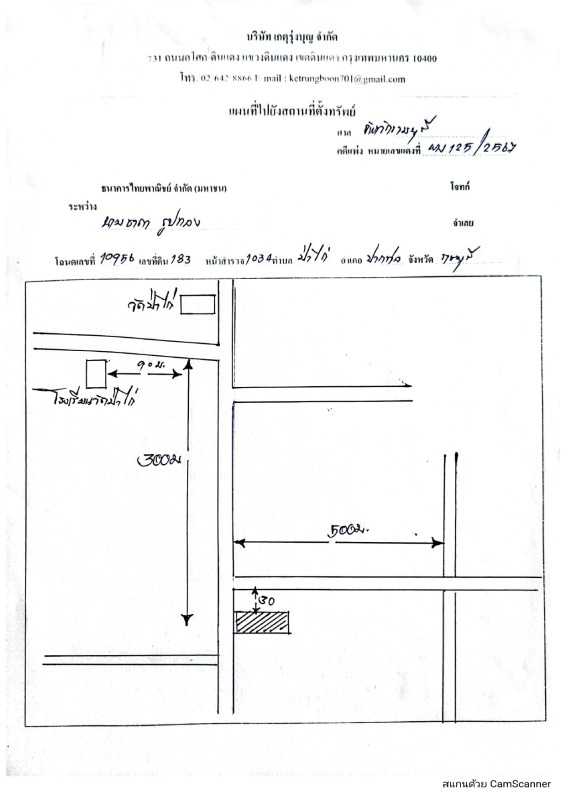 บริษัท เกตุรุ่งบุญ จำกัด
731 ถนนอโศก-ดินแดง แขวงดินแดง เขตดินแดง กรุงเทพมหานคร 10400
โทร. 02-642-8866 E-mail : ketrungboon701@gmail.com
แผนที่ไปยังสถานที่ตั้งทรัพย์
ศาล
คดีแพ่ง หมายเลขแดงที่ ผบ 125/2567
ธนาคารไทยพาณิชย์ จำกัด (มหาชน) โจทก์
ระหว่าง
จำเลย
โฉนดเลขที่ 10956 เลขที่ดิน 183 หน้าสำรวจ 1034 ตำบล ป่าไก่ อำเภอ ปากท่อ จังหวัด ราชบุรี
วัดป่าไก่
90 ม.
โรงเรียนวัดป่าไก่
300ม
500ม.
30
สแกนด้วย CamScanner